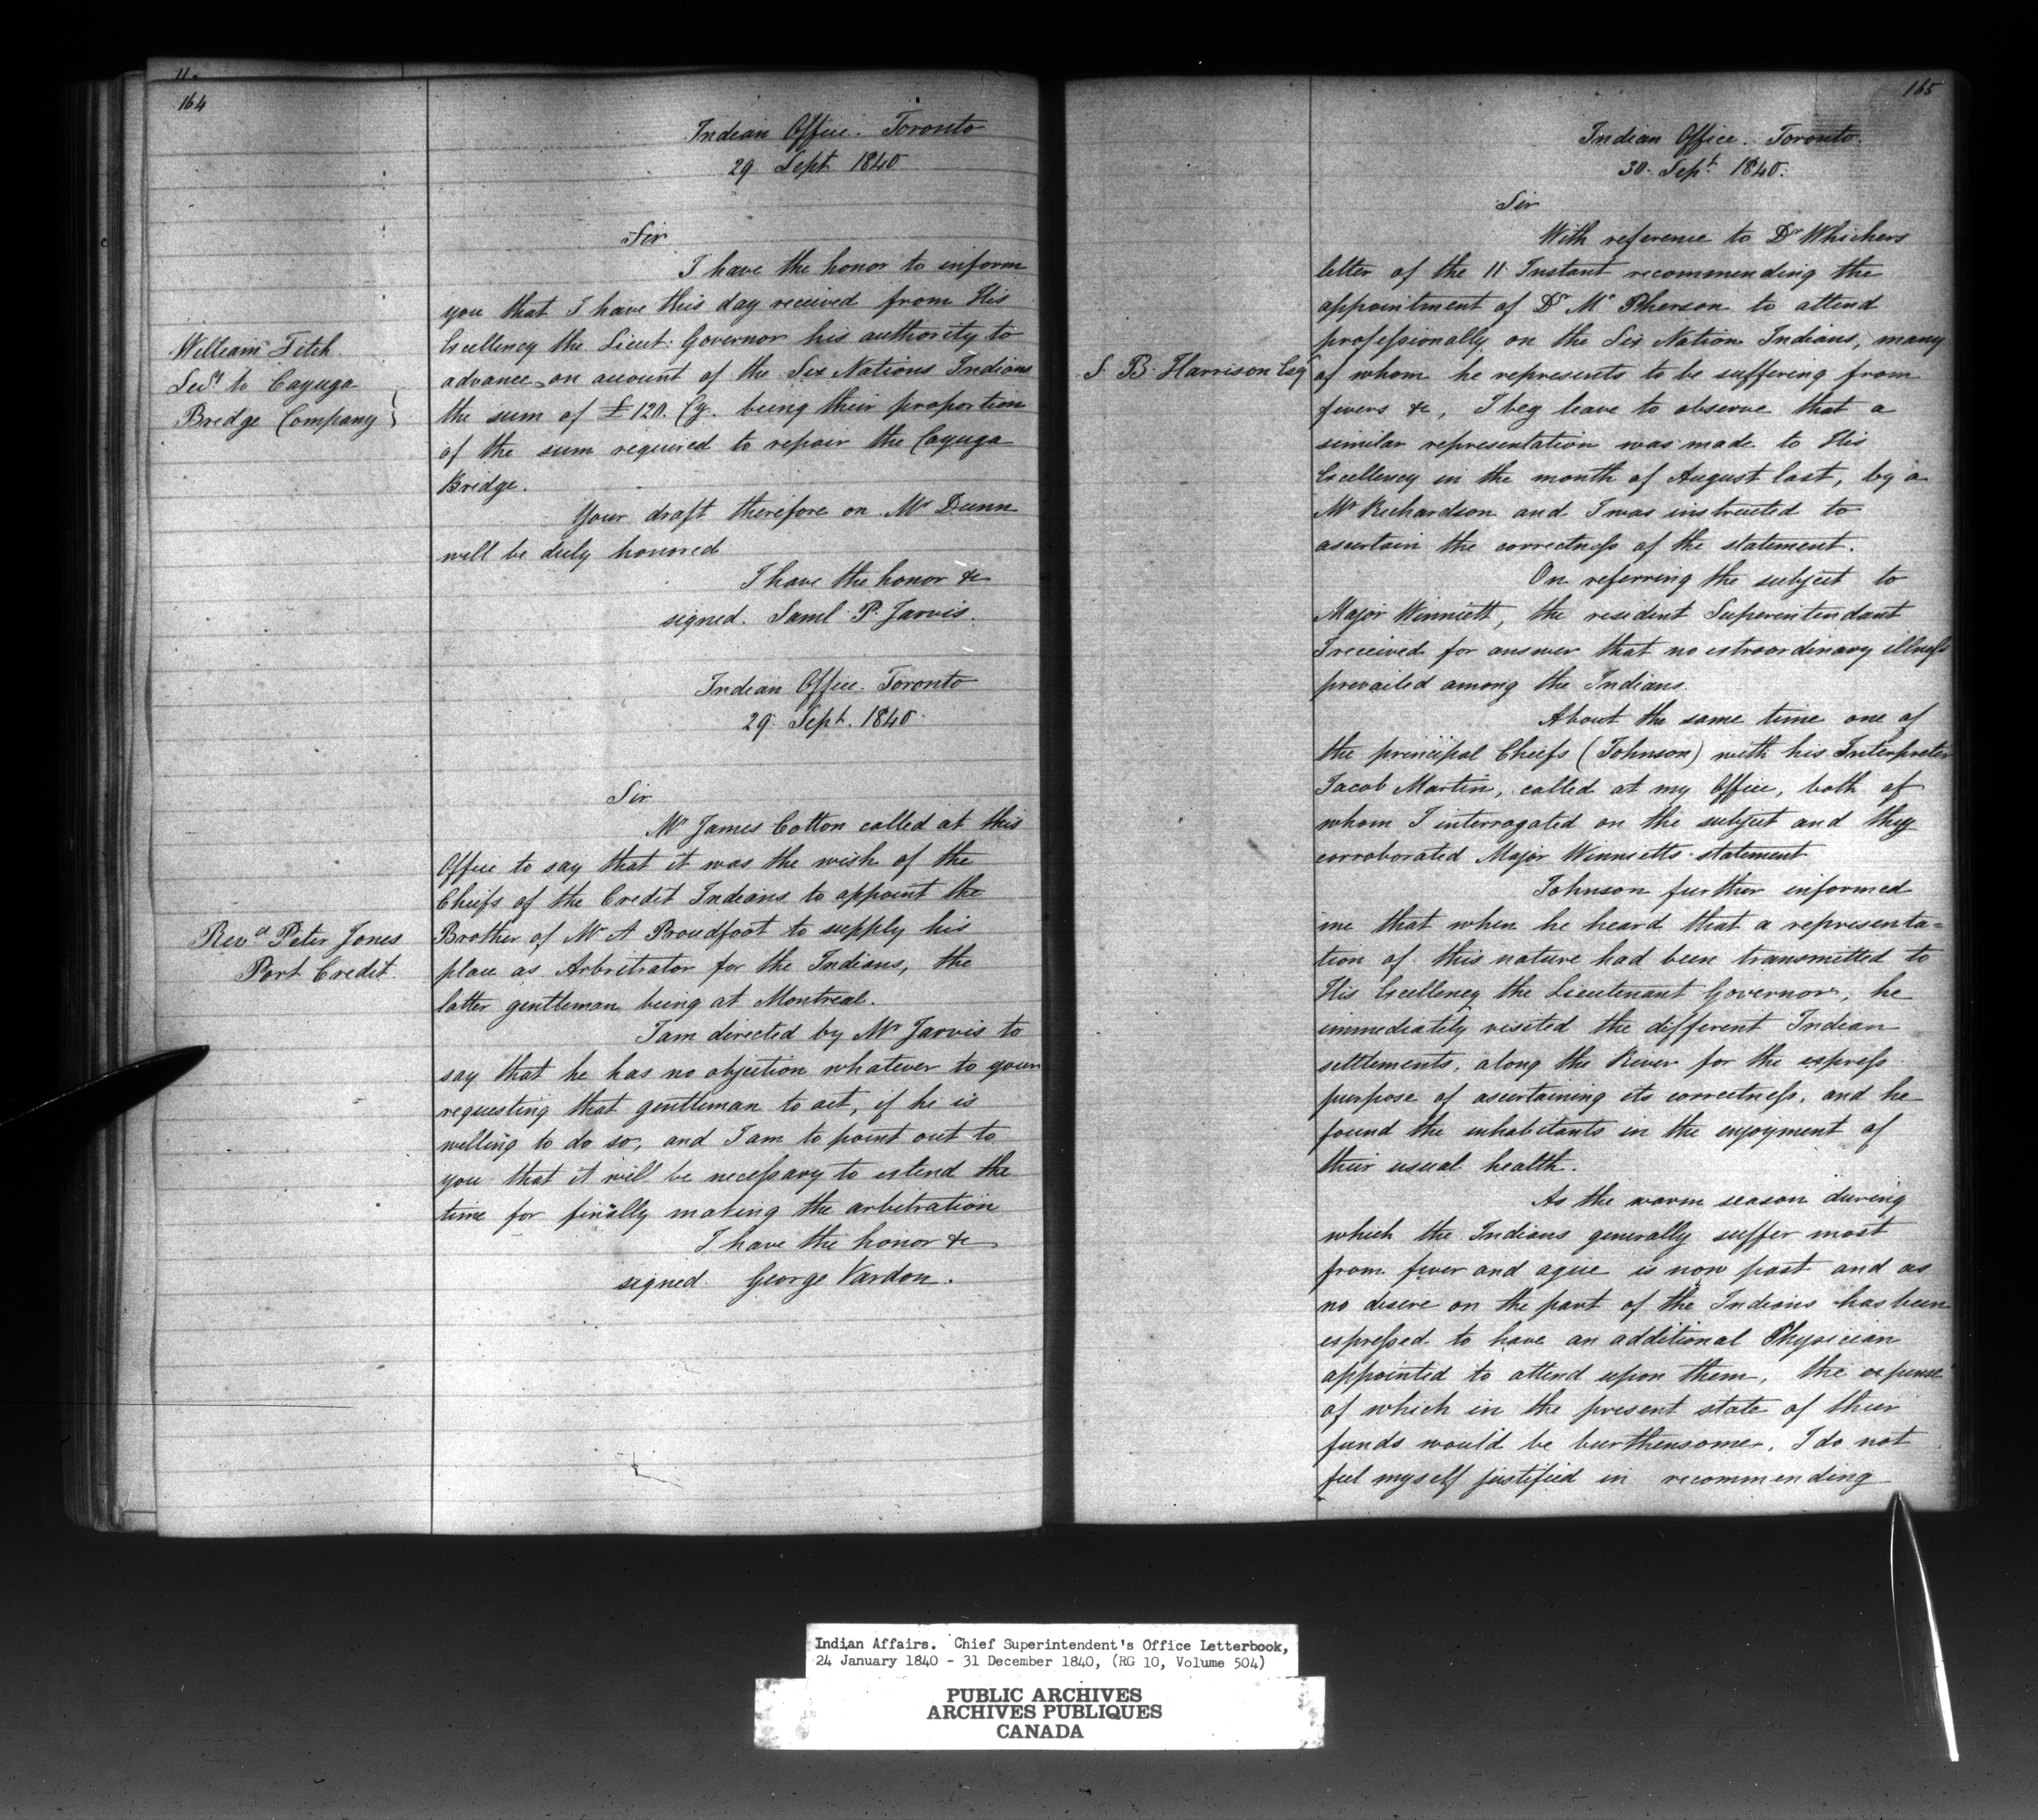 164
Indian Office. Toronto
29 Sept 1840
Sir
I have the honor to inform
you that I have this day received from His
Excellency the Lieut: Governor his authority to
advance on account of the Six Nations Indians
the sum of £120. Cy. being their proportion
of the sum required to repair the Cayuga
Bridge.
William Fitch
Secy to Cayuga
Bridge Company
Your draft therefore on Mr Dunn
will be duly honored
I have the honor &c
signed. Saml P. Jarvis.
Indian Office. Toronto
29. Sept. 1840.
Sir
Mr James Cotton called at this
Office to say that it was the wish of the
Chiefs of the Credit Indians to appoint the
Brother of Mr A Proudfoot to supply his
place as Arbritrator for the Indians, the
latter gentleman being at Montreal.
Revd Peter Jones
Port Credit.
I am directed by Mr Jarvis to
say that he has no objection whatever to your
requesting that gentleman to act, if he is
willing to do so, and I am to point out to
you that it will be necessary to extend the
time for finally making the arbitration
I have the honor &c
signed. George Vardon.
165
Indian Office. Toronto.
30. Sept. 1840.
Sir
With reference to Dr Whichers
letter of the 11 Instant recommending the
appointment of Dr Mc Pherson to attend
professionally on the Six Nation Indians, many
S. B. Harrison Esq
of whom he represents to be suffering from
fevers &c, I beg leave to observe that a
similar representation was made to His
Excellency in the month of August last, by a
Mr Richardson and I was instructed to
ascertain the correctness of the statement.
On referring the subject to
Major Winniett, the resident Superintendant
I received for answer that no extraordinary illness
prevailed among the Indians.
About the same time one of
the principal Chiefs (Johnson) with his Interpreter
Jacob Martin, called at my Office, both of
whom I interrogated on the subject and they
corroborated Major Winnietts statement
Johnson further informed
me that when he heard that a representa=
tion of this nature had been transmitted to
His Excellency the Lieutenant Governor, he
immediately visited the different Indian
settlements, along the River for the express
purpose of ascertaining its correctness, and he
found the inhabitants in the enjoyment of
their usual health.
As the warm season during
which the Indians generally suffer most
from fever and ague is now past and as
no desire on the part of the Indians has been
expressed to have an additional Physician
appointed to attend upon them, the expense
of which in the present state of their
funds would be burthensome, I do not
feel myself justified in recommending
Indian Affairs. Chief Superintendent's Office Letterbook,
24 January 1840 - 31 December 1840, (RG 10, Volume 504)
PUBLIC ARCHIVES
ARCHIVES PUBLIQUES
CANADA